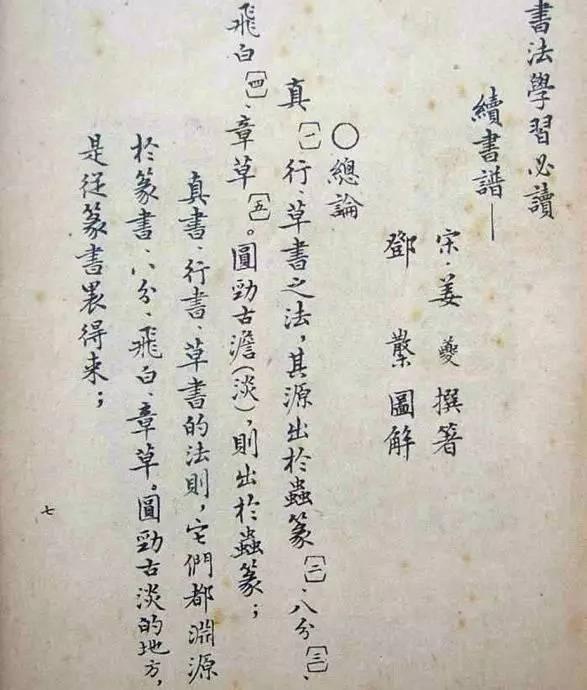 書法學習必讀
續書譜—
宋·姜夔撰著
鄧縶圖解
○總論
真〔一〕、行、草書之法，其源出於蟲篆〔二〕、八分〔三〕、
飛白〔四〕、章草〔五〕。圓勁古澹(淡)，則出於蟲篆；
真書、行書、草書的法則，它們都淵源
於篆書、八分、飛白、章草。圓勁古淡的地方，
是從篆書裏得來；
七